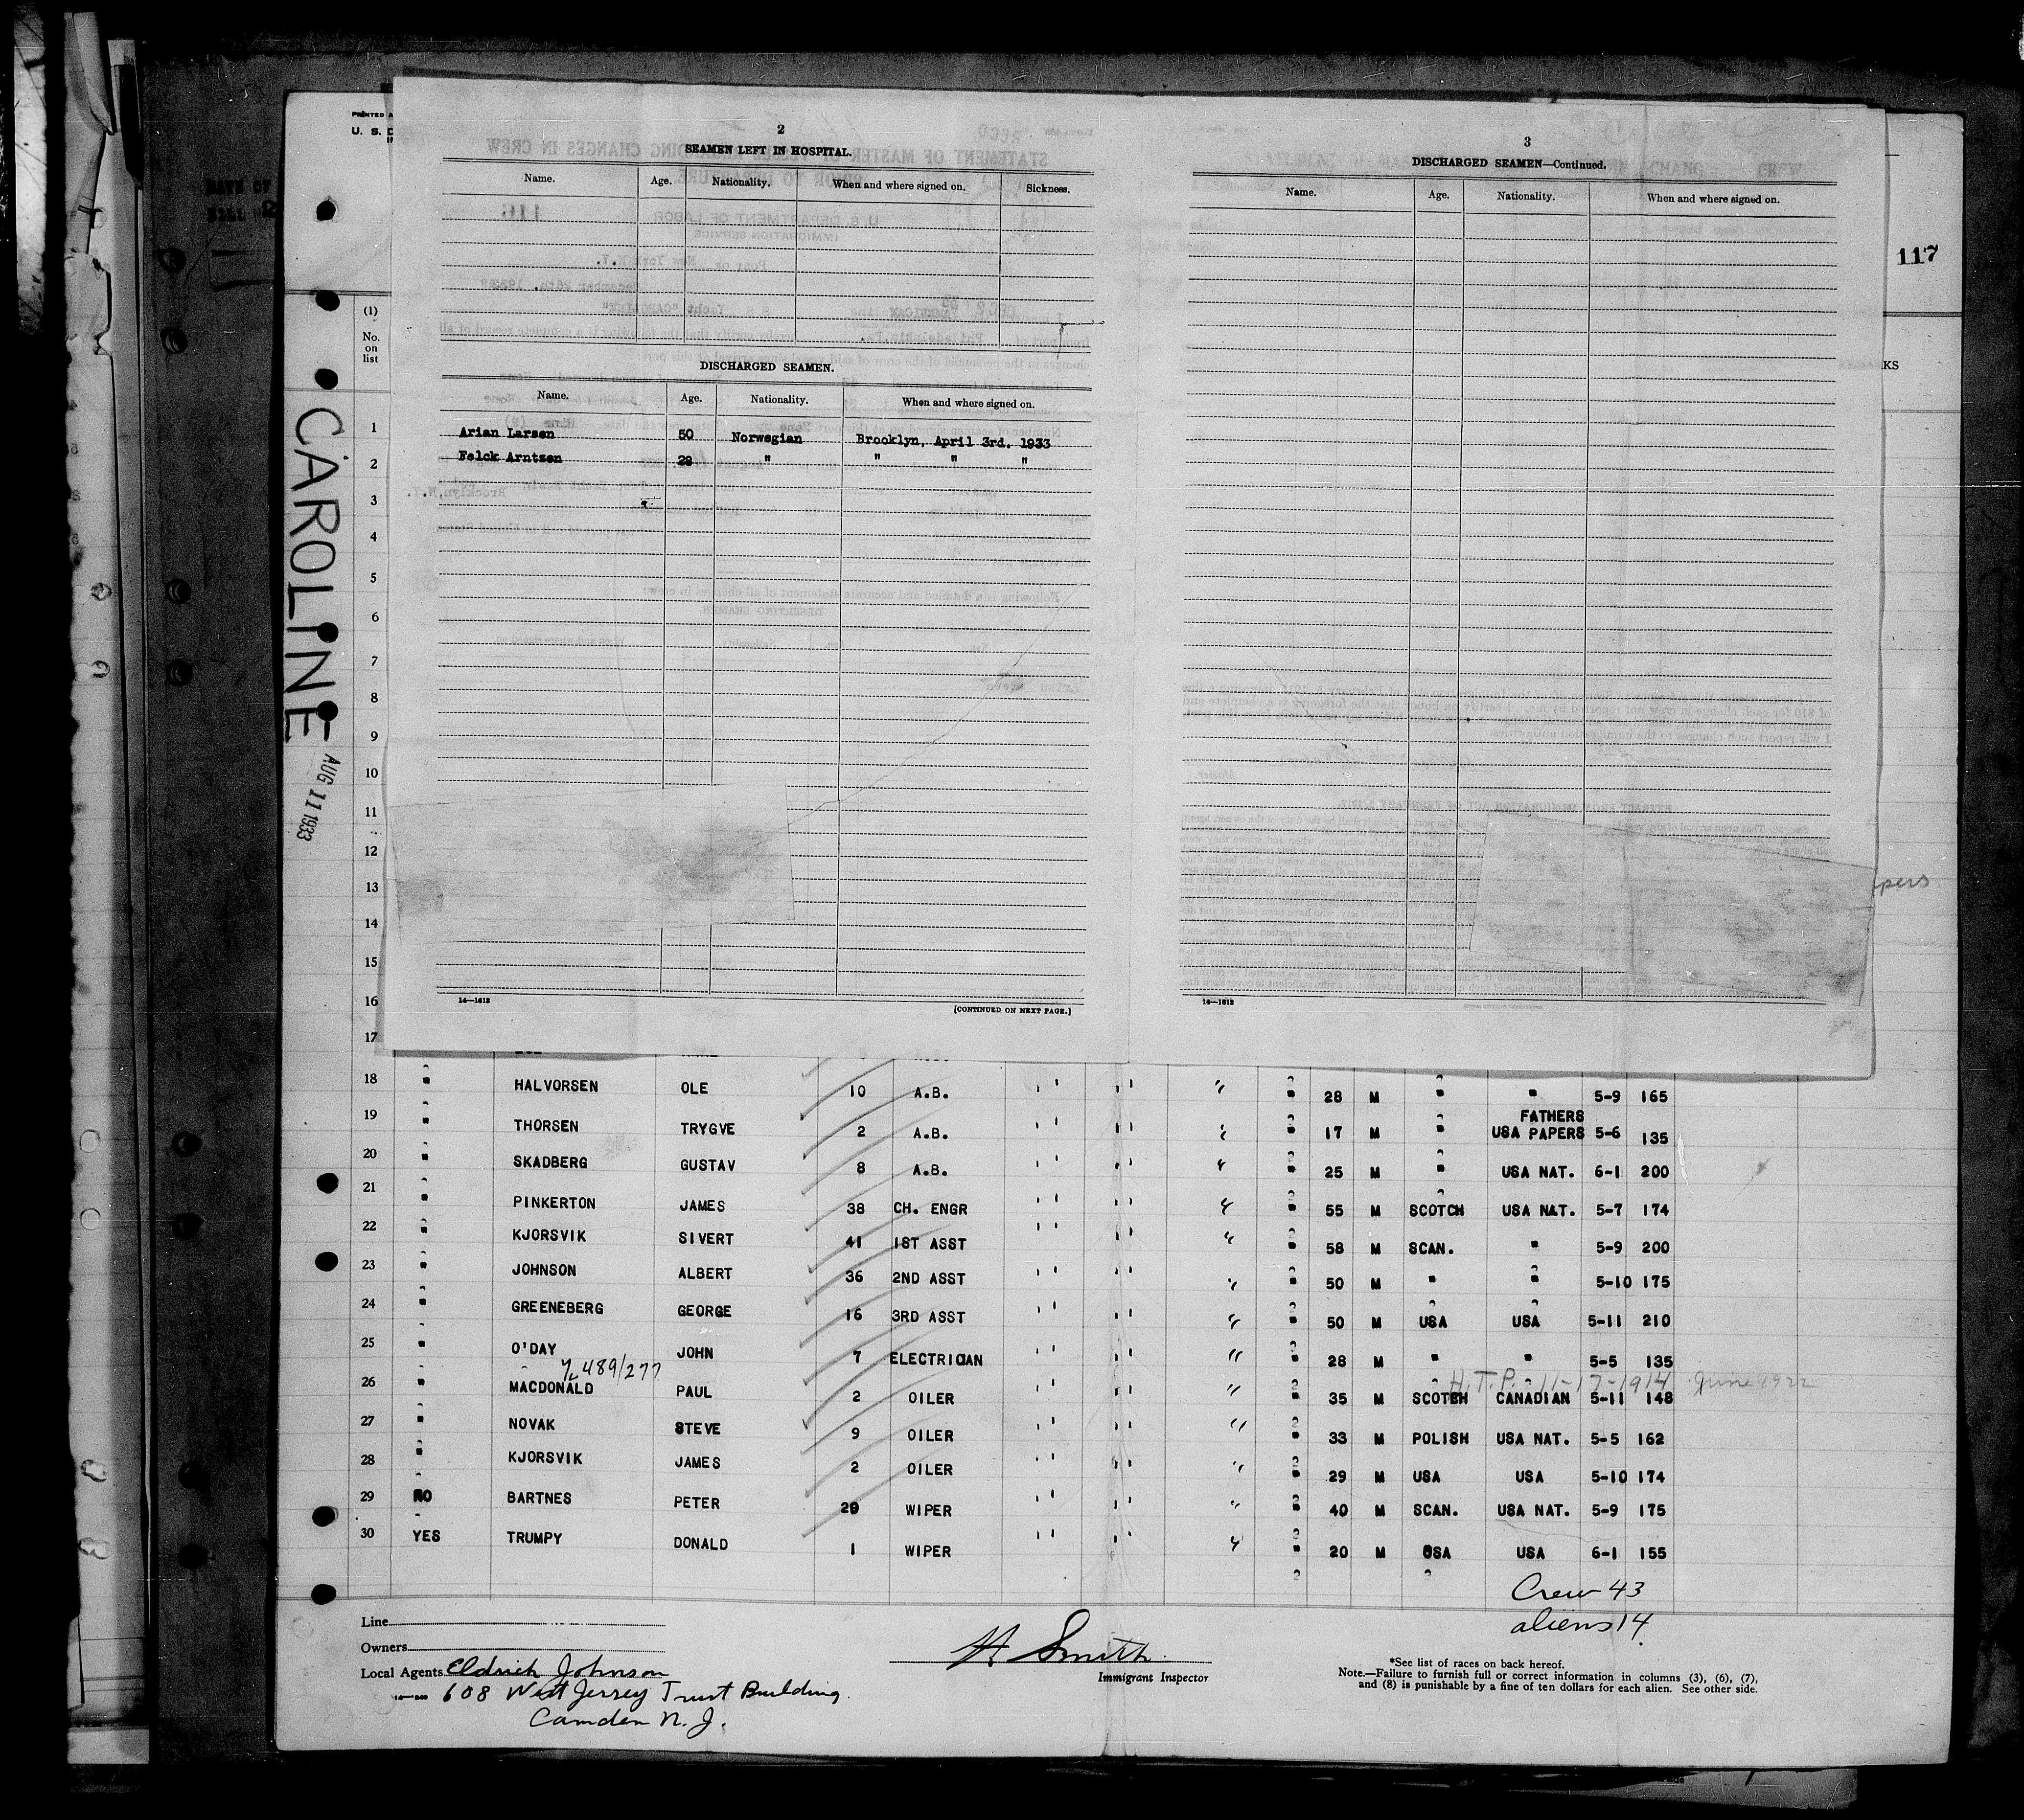 PRINTED
U. S. D
2
SEAMEN LEFT IN HOSPITAL.
Name. Age. Nationality. When and where signed on. Sickness.
DISCHARGED SEAMEN.
Name. Age. Nationality. When and where signed on.
Arian Larsen 50 Norwegian Brooklyn, April 3rd. 1933
Felck Arntzen 28 " " " "
14—1613
[CONTINUED ON NEXT PAGE.]
3
DISCHARGED SEAMEN—Continued.
Name. Age. Nationality. When and where signed on.
14—1613
117
KS
pers
CAROLINE
AUG 11 1933
(1)
No.
on
list
1
2
3
4
5
6
7
8
9
10
11
12
13
14
15
16
17
18 " HALVORSEN OLE 10 A.B. ' ' ' ' " " 28 M " " 5-9 165
FATHERS
19 " THORSEN TRYGVE 2 A.B. ' ' ' ' " " 17 M " USA PAPERS 5-6 135
20 " SKADBERG GUSTAV 8 A.B. ' ' ' ' " " 25 M " USA NAT. 6-1 200
21 " PINKERTON JAMES 38 CH. ENGR ' ' ' ' " " 55 M SCOTCH USA NAT. 5-7 174
22 " KJORSVIK SIVERT 41 1ST ASST ' ' ' ' " " 58 M SCAN. " 5-9 200
23 " JOHNSON ALBERT 36 2ND ASST ' ' ' ' " " 50 M " " 5-10 175
24 " GREENEBERG GEORGE 16 3RD ASST ' ' ' ' " " 50 M USA USA 5-11 210
25 " O'DAY JOHN 7 ELECTRICIAN ' ' ' ' " " 28 M " " 5-5 135
489/277 H.T.P. 11-17-1914 June 1922
26 " MACDONALD PAUL 2 OILER ' ' ' ' " " 35 M SCOTCH CANADIAN 5-11 148
27 " NOVAK STEVE 9 OILER ' ' ' ' " " 33 M POLISH USA NAT. 5-5 162
28 " KJORSVIK JAMES 2 OILER ' ' ' ' " " 29 M USA USA 5-10 174
29 NO BARTNES PETER 20 WIPER ' ' ' ' " " 40 M SCAN. USA NAT. 5-9 175
30 YES TRUMPY DONALD 1 WIPER ' ' ' ' " " 20 M USA USA 6-1 155
Crew 43
aliens 14
Line
Owners
Local Agents Eldrich Johnson
608 West Jersey Trust Building
Camden N. J.
H Smith
Immigrant Inspector
*See list of races on back hereof.
Note.—Failure to furnish full or correct information in columns (3), (6), (7),
and (8) is punishable by a fine of ten dollars for each alien. See other side.